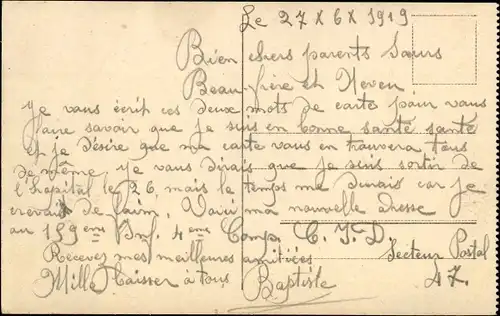 Le 27 x 6 x 1919
Bien chers parents Sœurs
Beau frère et Neveu
Je vous écrit ces deux mots de carte pour vous
faire savoir que je suis en bonne santé santé
et je désire que ma carte vous en trouvera tous
de même, je vous dirais que je suis sortir de
l'hopital le 26 mais le temps me durais car je
crevais de faim, Voici ma nouvelle adresse
au 159eme Inf. 4eme Comp. C. I. D.
Secteur Postal
47.
Recevez mes meilleures amitiées
Mille Baisser à tous
Baptiste